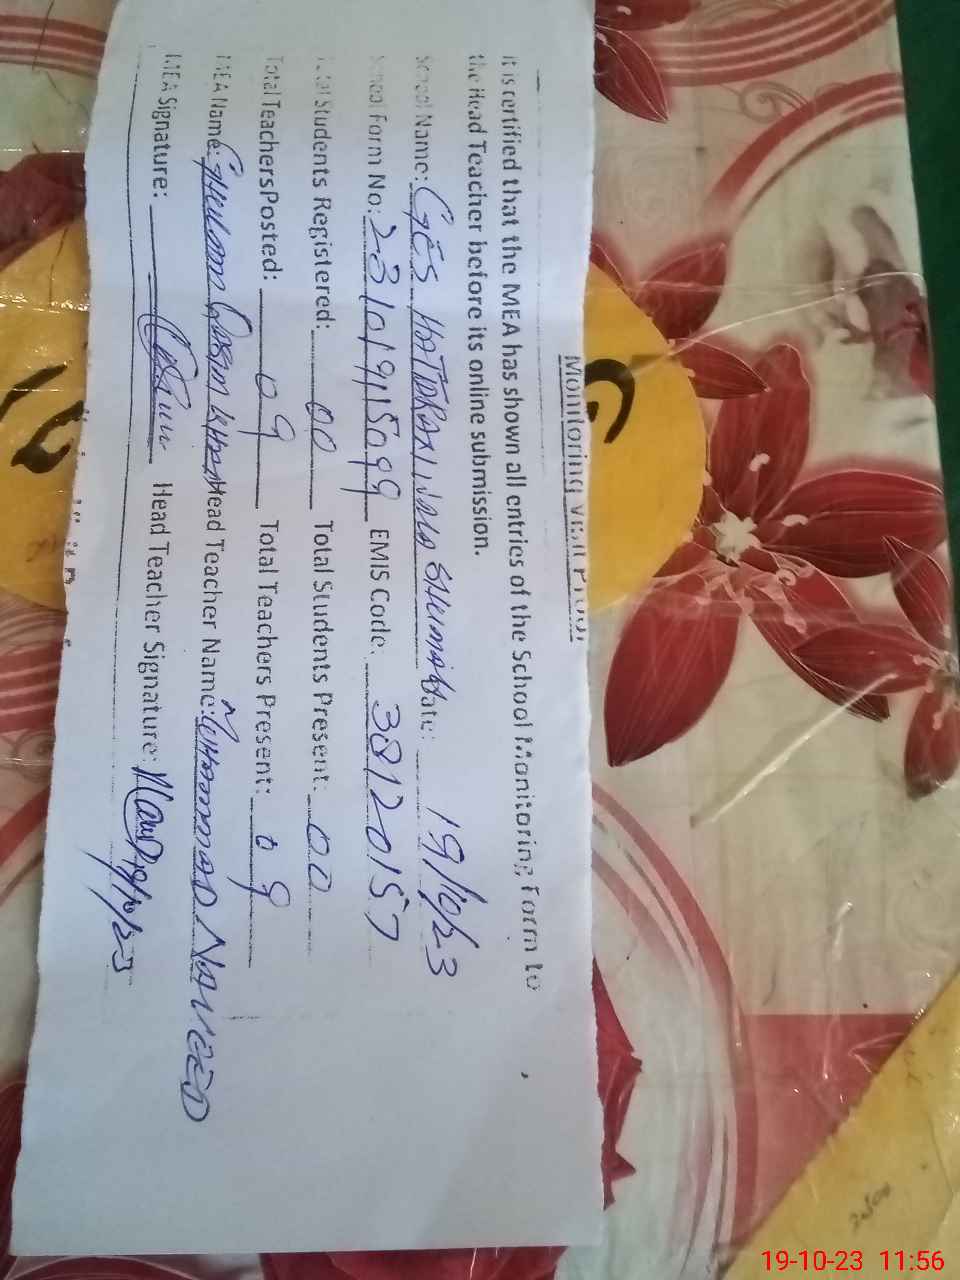 Monitoring Visit Proof
It is certified that the MEA has shown all entries of the School Monitoring Form to
the Head Teacher before its online submission.
School Name: GES Date: 19/10/23
School Form No: 23101915099 EMIS Code: 38120157
Total Students Registered: 00 Total Students Present: 00
Total Teachers Posted: 09 Total Teachers Present: 09
MEA Name: Ghulam Qasim Khan Head Teacher Name: Muhammad Naveed
MEA Signature: Head Teacher Signature: 19/10/23
19-10-23 11:56